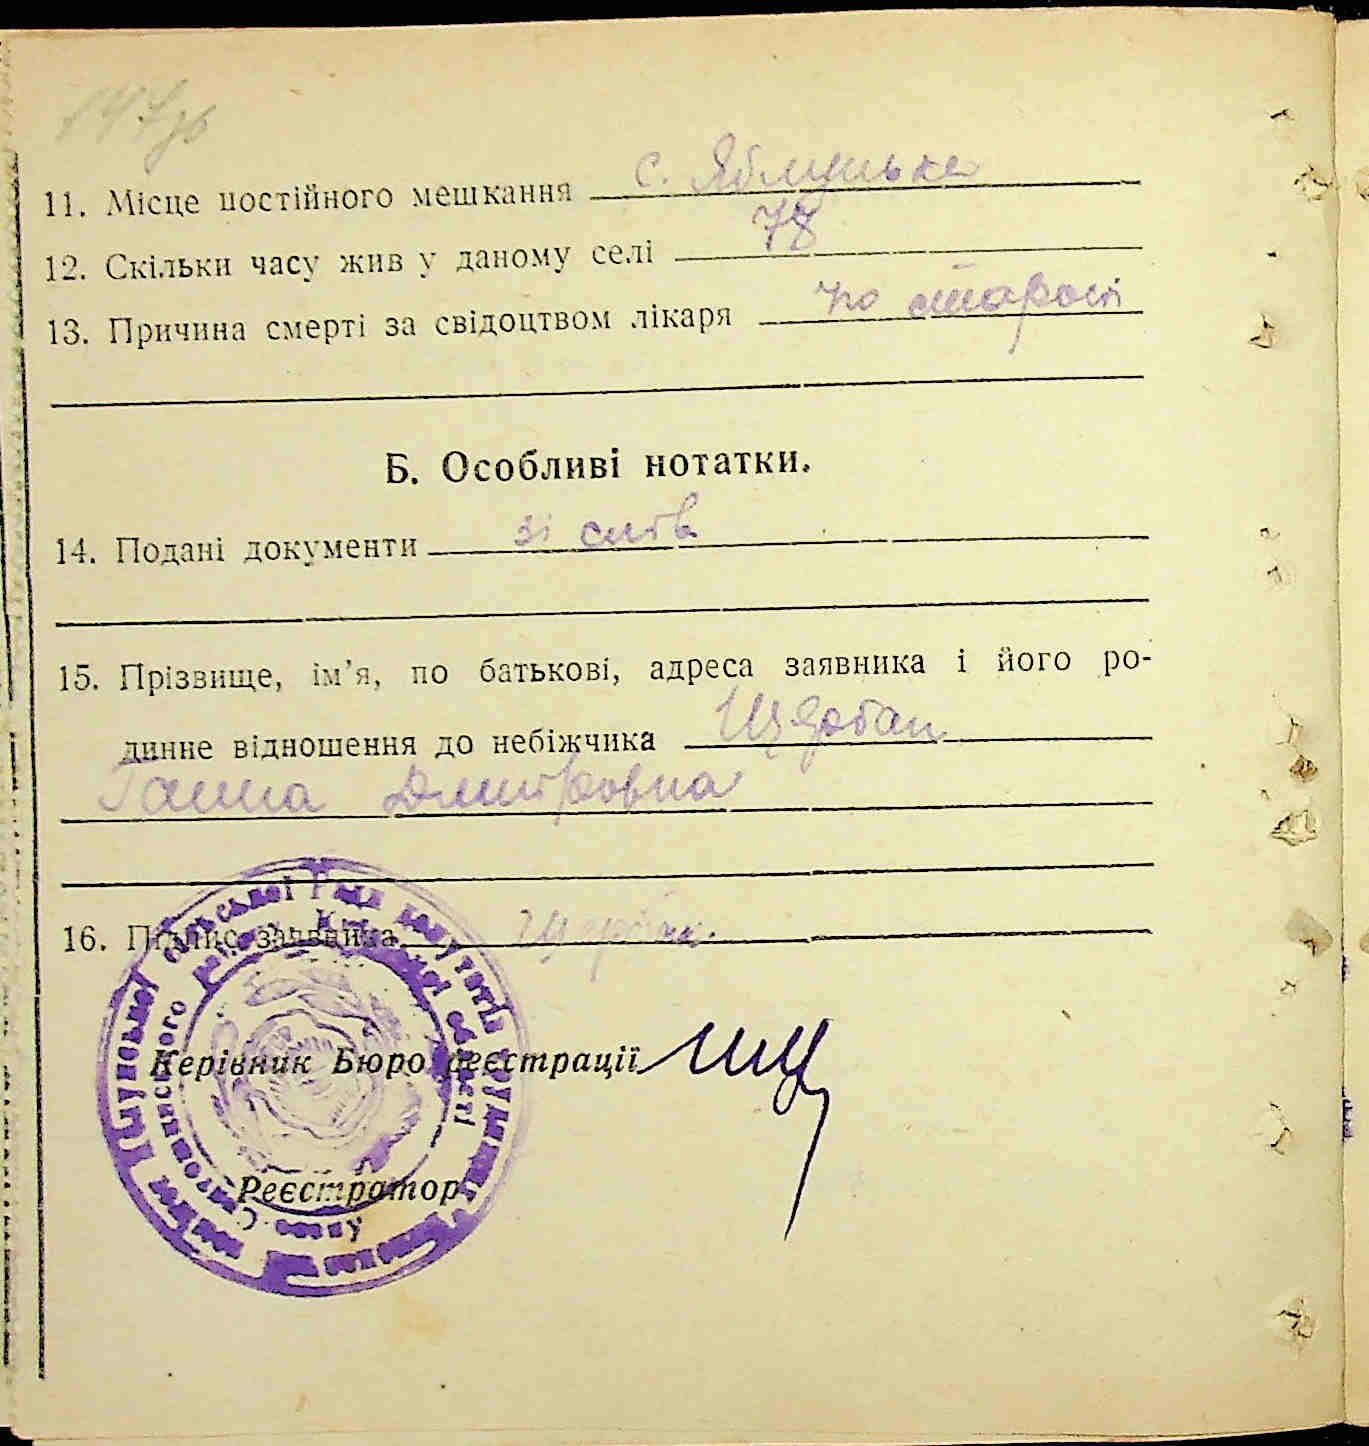 147зв
11. Місце постійного мешкання с. Яблунька
12. Скільки часу жив у даному селі 78
13. Причина смерті за свідоцтвом лікаря по старості
Б. Особливі нотатки.
14. Подані документи зі слів
15. Прізвище, ім’я, по батькові, адреса заявника і його ро-
динне відношення до небіжчика Щербак
Ганна Дмитровна
16. Підпис заявника Щербак.
сільської Ради депутатів трудящих
Києво-Святошинського Київської області
Керівник Бюро реєстрації
Реєстратор